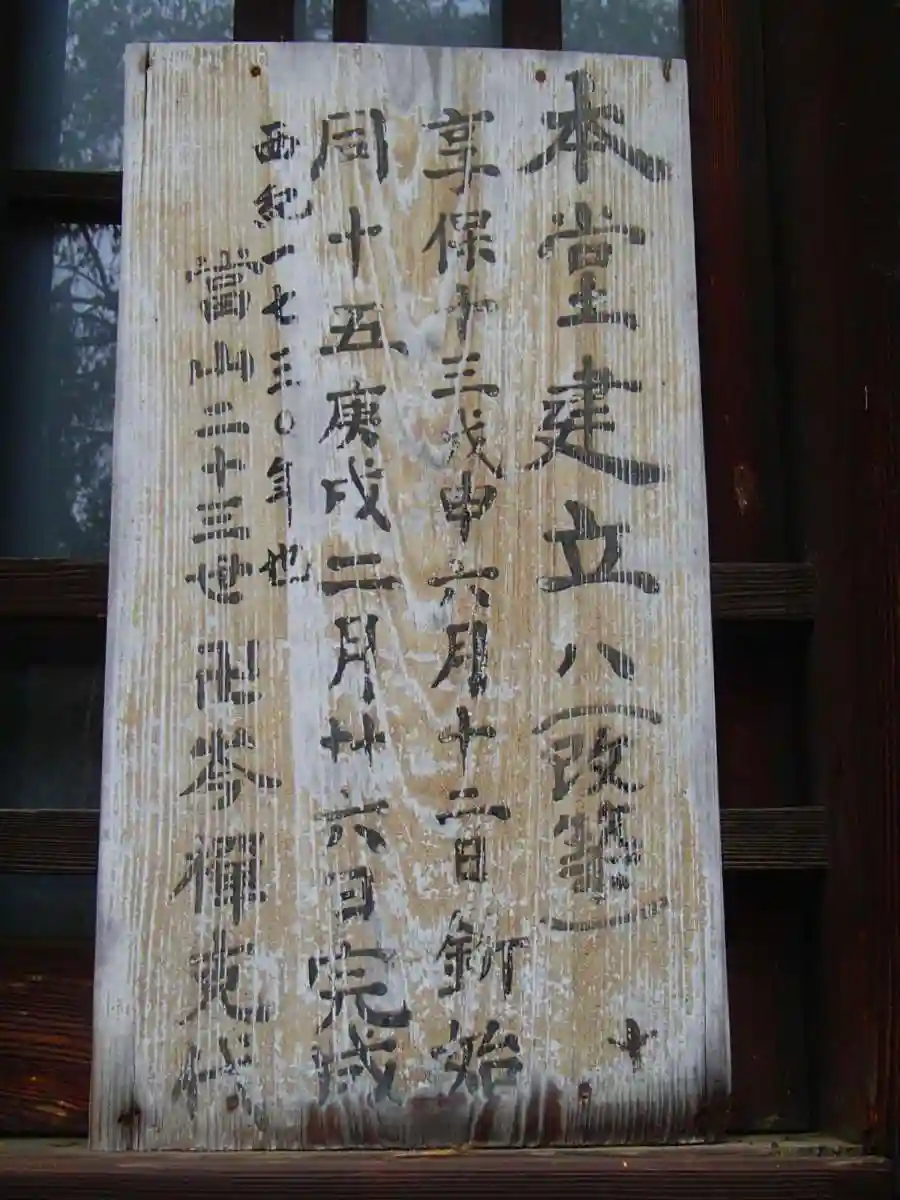 本堂建立ハ(改築)
十
享保十三戊申六月十二日釿始
同十五庚戌二月廿六日完成
西紀一七三〇年也
當山二十三世卍岑禪克代